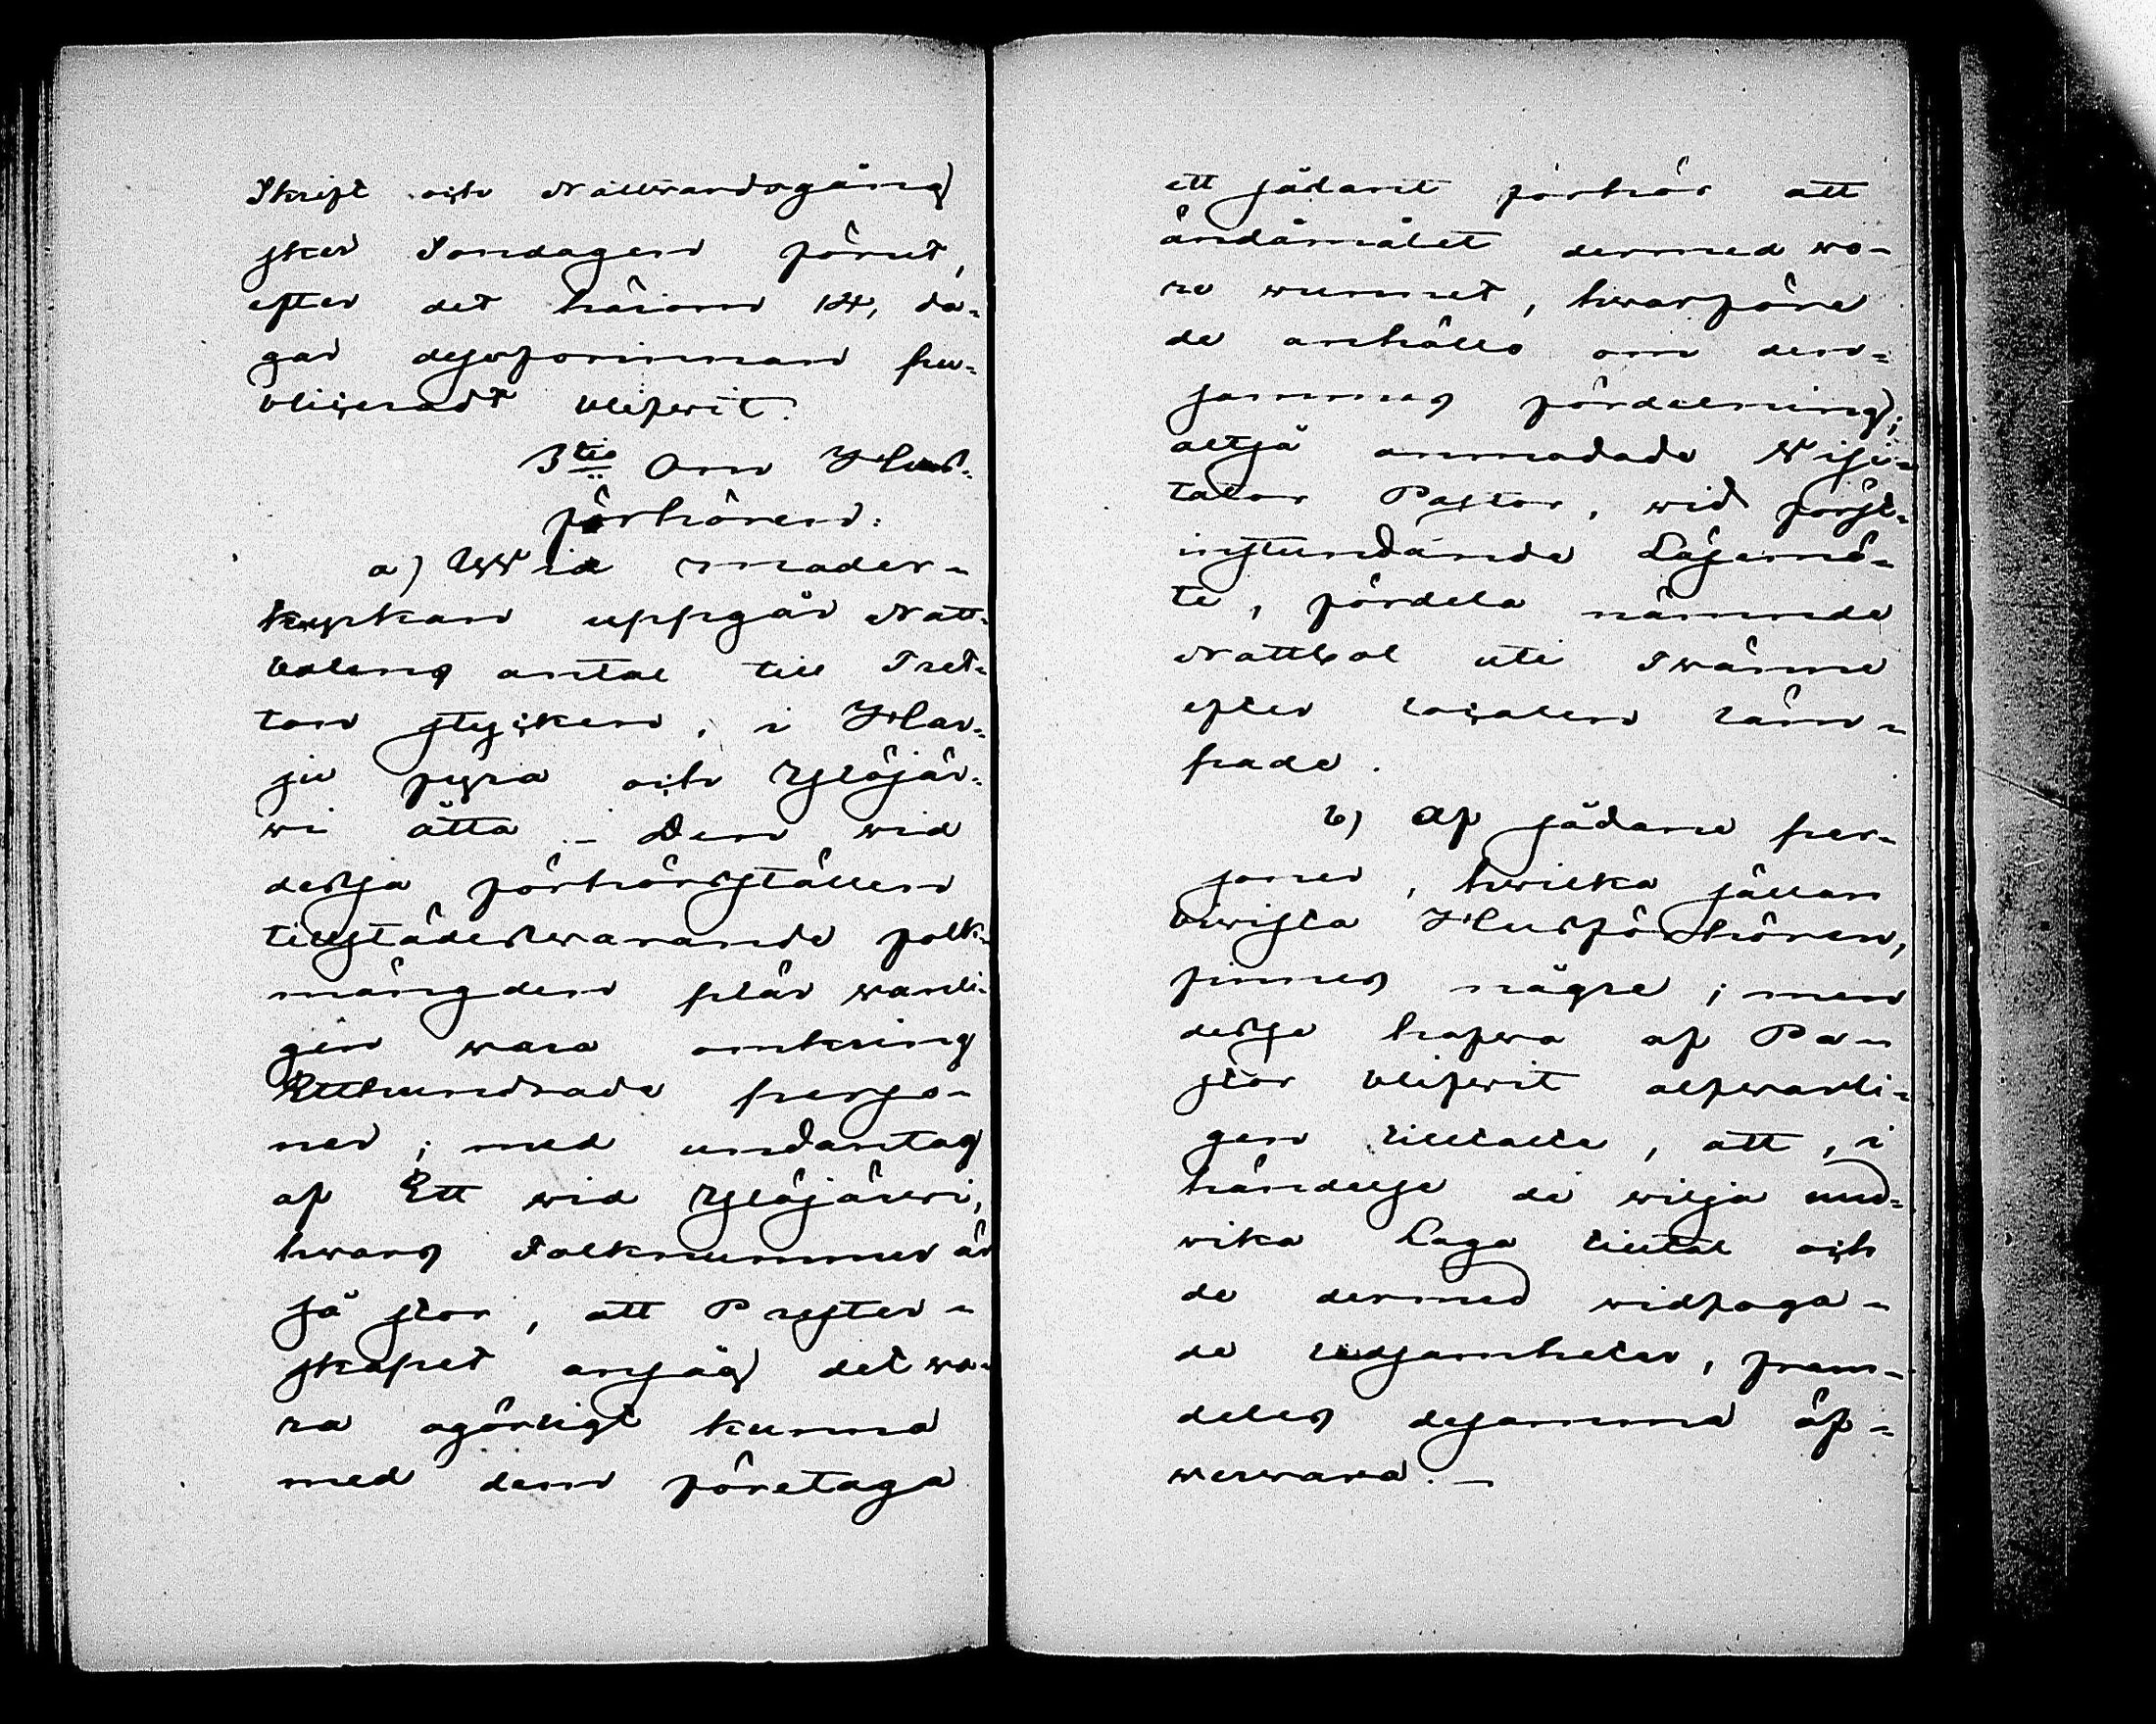 Skrift och Nattwardsgång
sker Söndagen förut,
efter det härom 14, da-
gar dessförinnan pu-
bliceradt blifwit.
3tio Om Hus-
förhören:
a) Wid moder-
kyrkan uppgår Natt-
bolens antal till Tret-
ton stycken, i Har-
ju fyra och Ylöjär-
wi åtta. - Den wid
dessa förhörsställen
tillstädeswarande folk-
mängden plär wanli-
gen wara omkring
Etthundrade perso-
ner; med undantag
af Ett wid Ylöjärwi,
hwars Folknummer är
så stor, att Prester-
skapet ansåg det wa-
ra ogörligt kunna
med dem företaga
ett sådant förhör att
ändamålet dermed wo-
re wunnet, hwarföre
de anhållo om den-
sammes fördelning;
altså anmodade Wisi-
tator Pastor, wid först-
instundande Läsemö-
te, fördela nämnde
Nattbol uti Twänne
efter localen läm-
pade.
b) Af sådane per-
soner, hwilka sällan
bewista Husförhören,
finnes någre; men
dessa hafwa af Pa-
stor blifwit alfwarli-
gen tilltalte, att, i
händelse de wilja und-
wika Laga tilltal och
de dermed widfoga-
de ledsamheter, fram-
deles desamma öf-
werwara. -